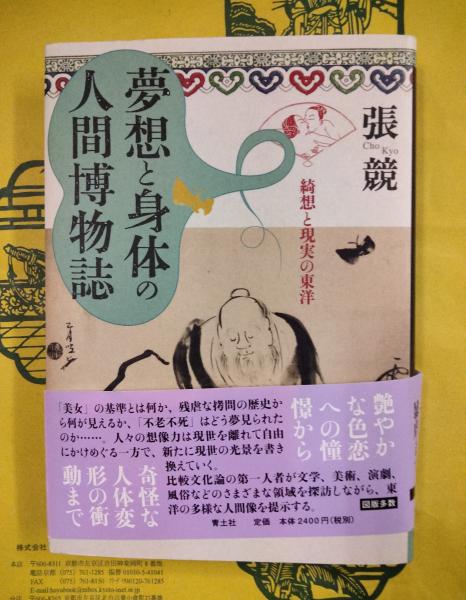 張競
Cho Kyo
夢想と身体の
人間博物誌
綺想と現実の東洋
艶やか
な色恋
への憧
憬から
「美女」の基準とは何か、残虐な拷問の歴史か
ら何が見えるか、「不老不死」はどう夢見られた
のか……。人々の想像力は現世を離れて自由
にかけめぐる一方で、新たに現世の光景を書き
換えていく。
比較文化論の第一人者が文学、美術、演劇、
風俗などのさまざまな領域を探訪しながら、東
洋の多様な人間像を提示する。
奇怪な
人体変
形の衝
動まで
図版多数
青土社 定価 本体2400円(税別)
株式会社
本店 〒606-8311 京都市左京区吉田神楽岡町8番地
電話京都 (075) 761-1285 振替 01010-5-41041
FAX (075) 761-8150